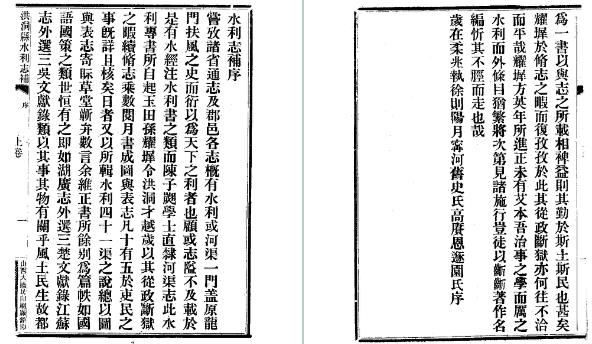 水利志補序
嘗攷諸省通志及郡邑各志槪有水利或河渠一門盖原龍
門扶風之史而衍以為天下之利者也顧或志隘不及載於
是有水經注水利書之類而陳子翽學士直隸河渠志此水
利專書所自起玉田孫耀墀令洪洞才越歲以其從政斷獄
之暇續脩志乘數閱月書成圖與表志凡十有五於吏民之
事旣詳且核矣日者又以所輯水利四十一渠之說總以圖
與表志寄眎草堂蘄弁數言余維正書所餘别為篇帙如國
語國策之類世恒有之即如湖廣志外選三楚文獻錄江蘇
志外選三吳文獻錄類以其事其物有關乎風土民生故都
洪洞縣水利志補
序
上卷
一
為一書以與志之所載相裨益則其勤於斯土斯民也甚矣
耀墀於脩志之暇而復孜孜於此其從政斷獄亦何往不治
而平哉耀墀方英年所進正未有艾本吾治事之學而厲之
水利而外條目猶繁將次第見諸施行豈徒以斷斷著作名
編忻其不脛而走也哉
歲在柔兆執徐則陽月寗河舊史氏高賡恩遯園氏序